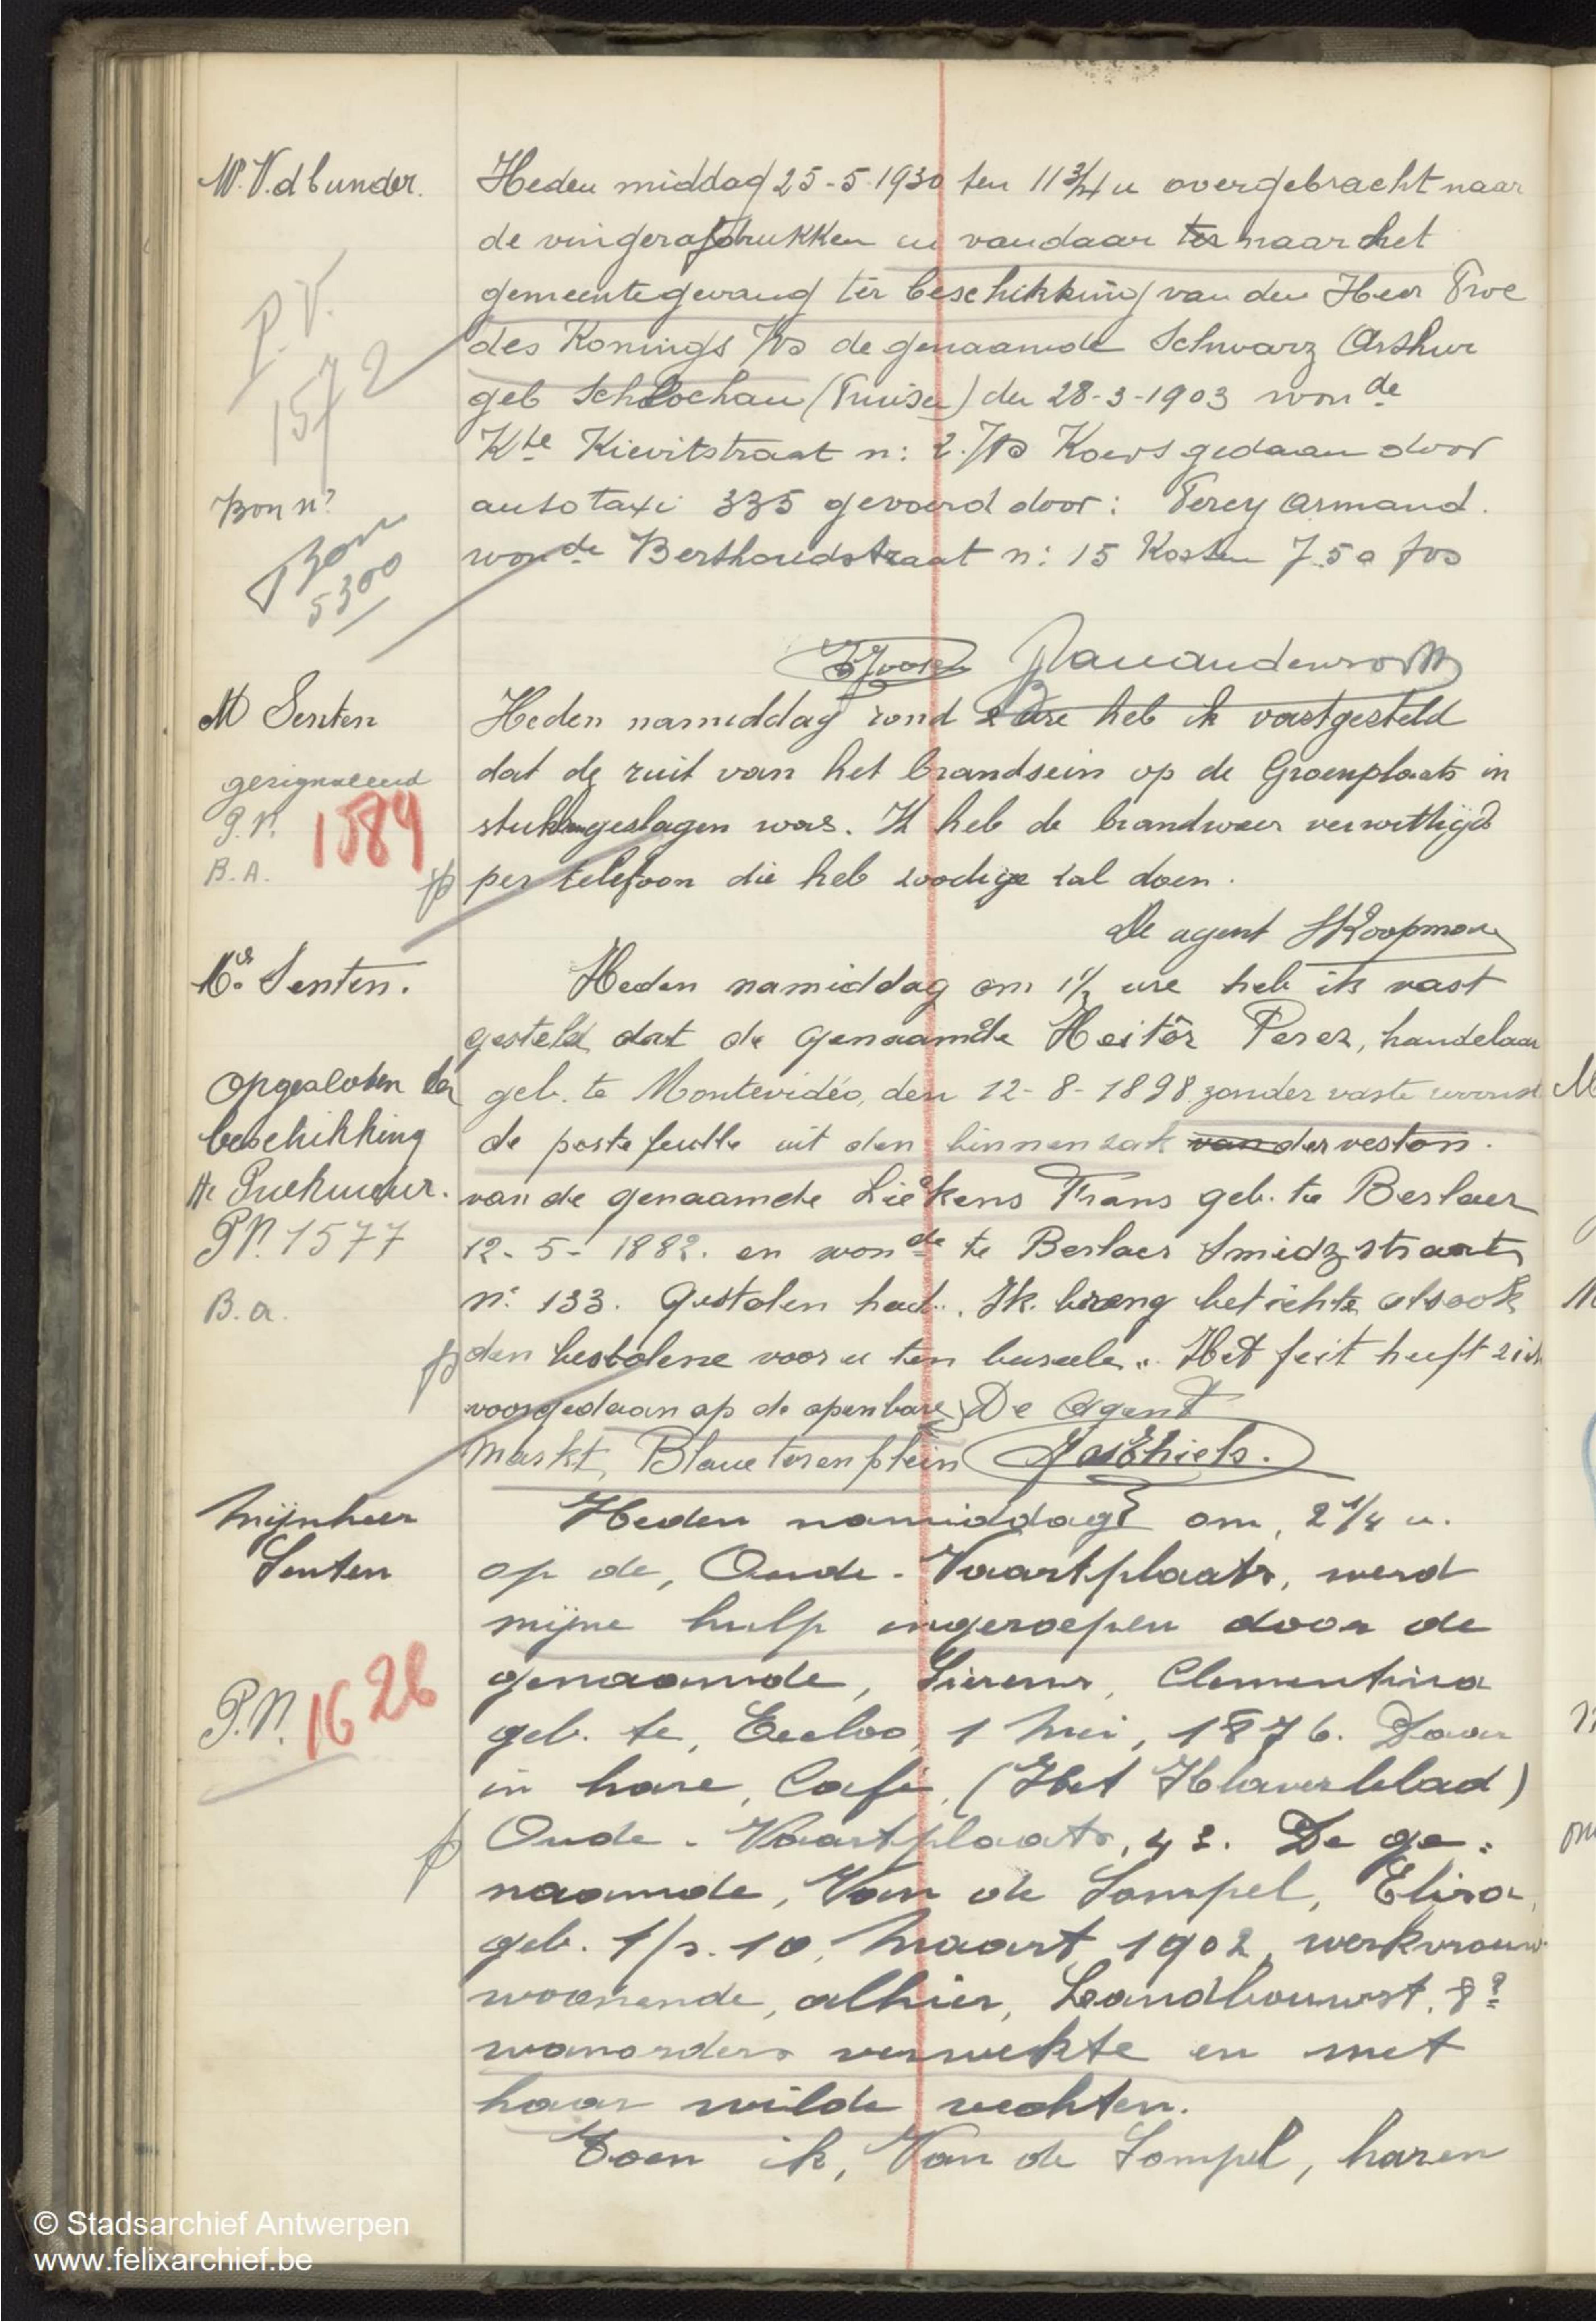 M. V.d bunder.
Heden middag 25-5-1930 ten 11 3/4 u overgebracht naar
de vingerafdrukken en vandaar naar het
gemeentegevang ter beschikking van den Heer Proc
des Konings de genaamde Schwarz Arthur
geb Schlochau (Pruisen) den 28-3-1903 won de
Kte Kievitstraat n: 2. Koers gedaan door
autotaxi 335 gevoerd door: Percy Armand.
won de Berthoudstraat n: 15 Kosten 7.50 frs
P.V.
1572
Bon n?
Bon
5300
M Senten
gesignaleerd
P.V. 1584
B.A.
Heden namiddag rond 2 ure heb ik vastgesteld
dat de ruit van het brandsein op de Groenplaats in
stukken geslagen was. Ik heb de brandweer verwittigd
per telefoon die heb noodige zal doen.
De agent Koopman
Mr. Senten.
Opgesloten ter
beschikking
P.V. 1577
B.a.
Heden namiddag om 1 1/2 ure heb ik vast
gesteld dat de genaamde Heitor Perez, handelaar
geb. te Montevidéo, den 12-8-1898. zonder vaste woonst
de postefeulle uit den binnenzak van der veston.
van de genaamde Liekens Frans geb. te Berlaer
12-5-1882. en won de te Berlaer Smidzstraat
n: 133. Gestolen had. Ik breng betichte alsook
den bestolene voor u ten bureele. Het feit heeft zich
voorgedaan op de openbare De Agent
Markt, Blauwtorenplein
Mijnheer
Senten
P.V. 1626
Heden namiddag om, 2 1/4 u.
op de, Oude-Vaartplaats, werd
mijne hulp ingeroepen door de
genaamde, Sierens, Clementina
geb. te, Eecloo, 1 Mei, 1876. Daar
in hare, Café, (Het Klaverblad)
Oude-Vaartplaats, 43. De ge:
naamde, Van de Sompel, Elisa,
geb. 1/s. 10, Maart 1902, werkvrouw
woonende, alhier, Landbouwst. 8?
wanorders verwekte en met
haar wilde vechten.
Toen ik, Van de Sompel, haren
© Stadsarchief Antwerpen
www.felixarchief.be